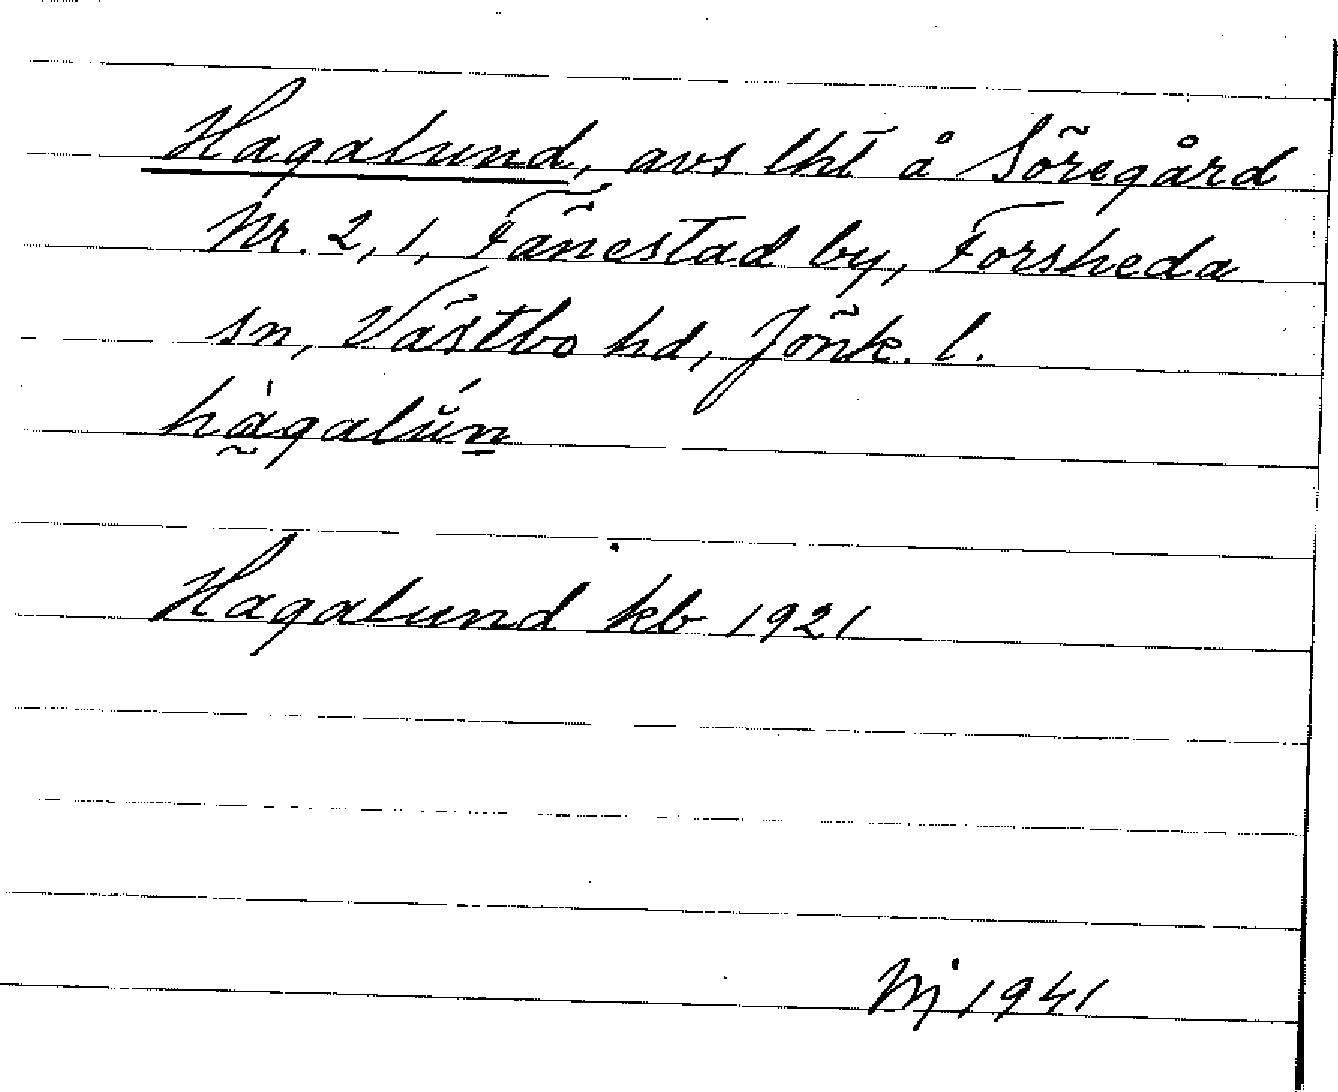 Hagalund, avs lht å Söregård
Nr. 2, 1, Fänestad by, Forsheda
sn, Västbo hd, Jönk. l.
hàgalún
Hagalund kb 1921
Nj 1941